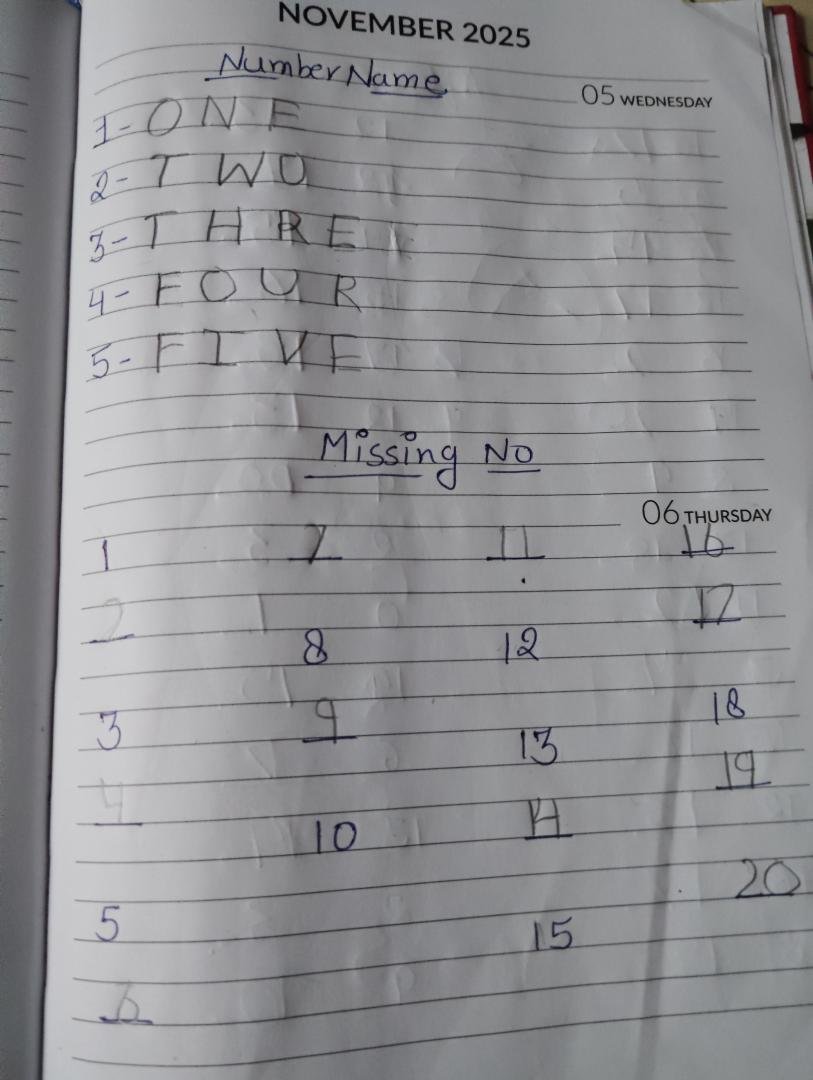 NOVEMBER 2025
Number Name
05 WEDNESDAY
1- ONE
2- TWO
3- THRE
4- FOUR
5- FIVE
Missing No
06 THURSDAY
1 7 11 16
2 17
8 12
3 9 18
13
4 19
10 14
20
5 15
6